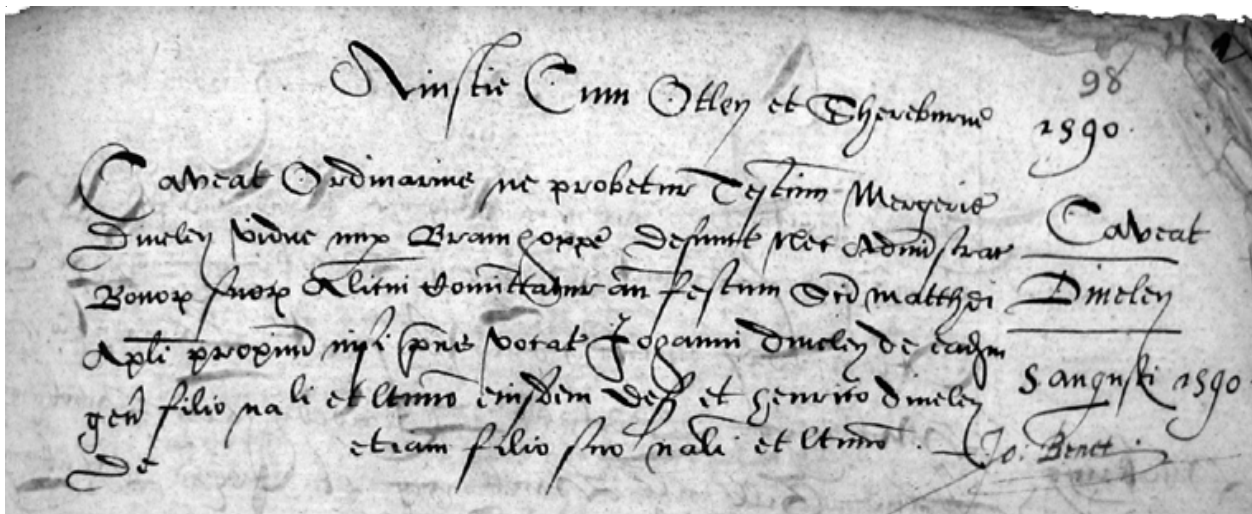 Ainstie Cum Otley et Shereburne
98
1590
Caveat Ordinarius ne probetur Testum Mergerie
Dineley vidue nup Bramhoppe defunct Nec Administrac
Bonor suor Alicui Comittatur an festum Sci Matthei
Apli proximu nisi prius vocat Johanni Dineley de eadm
gen filio nali et ltimo eiusdem def et henrico Dineley
de
etiam filio suo nali et ltimo
Caveat
Dineley
5 Augusti 1590
Jo. Benet